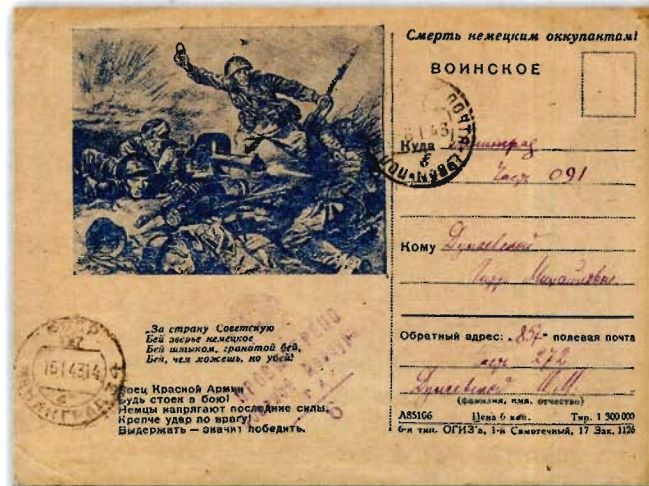 Смерть немецким оккупантам!
ВОИНСКОЕ
Куда Ленинград
Часть 091
Кому Дунаевской
Михайловне
Обратный адрес: „857" полевая почта
часть 272
Дунаевской И.М.
(фамилия, имя, отчество)
А85166 Цена 6 коп. Тир. 1 300 000
6-я тип. ОГИЗ'а, 1-й Самотечный, 17 Зак. 1126
„За страну Советскую
Бей зверье немецкое
Бей штыком, гранатой бей,
Бей, чем хожешь, но убей!
Боец Красной Армии
Будь стоек в бою!
Немцы напрягают последние силы.
Крепче удар по врагу!
Выдержать — значит победить.
СССР
15 1 43 14
ЛЕНИНГРАД
ПОЛЕВАЯ ПОЧТА
1 43
ПРОСМОТРЕНО